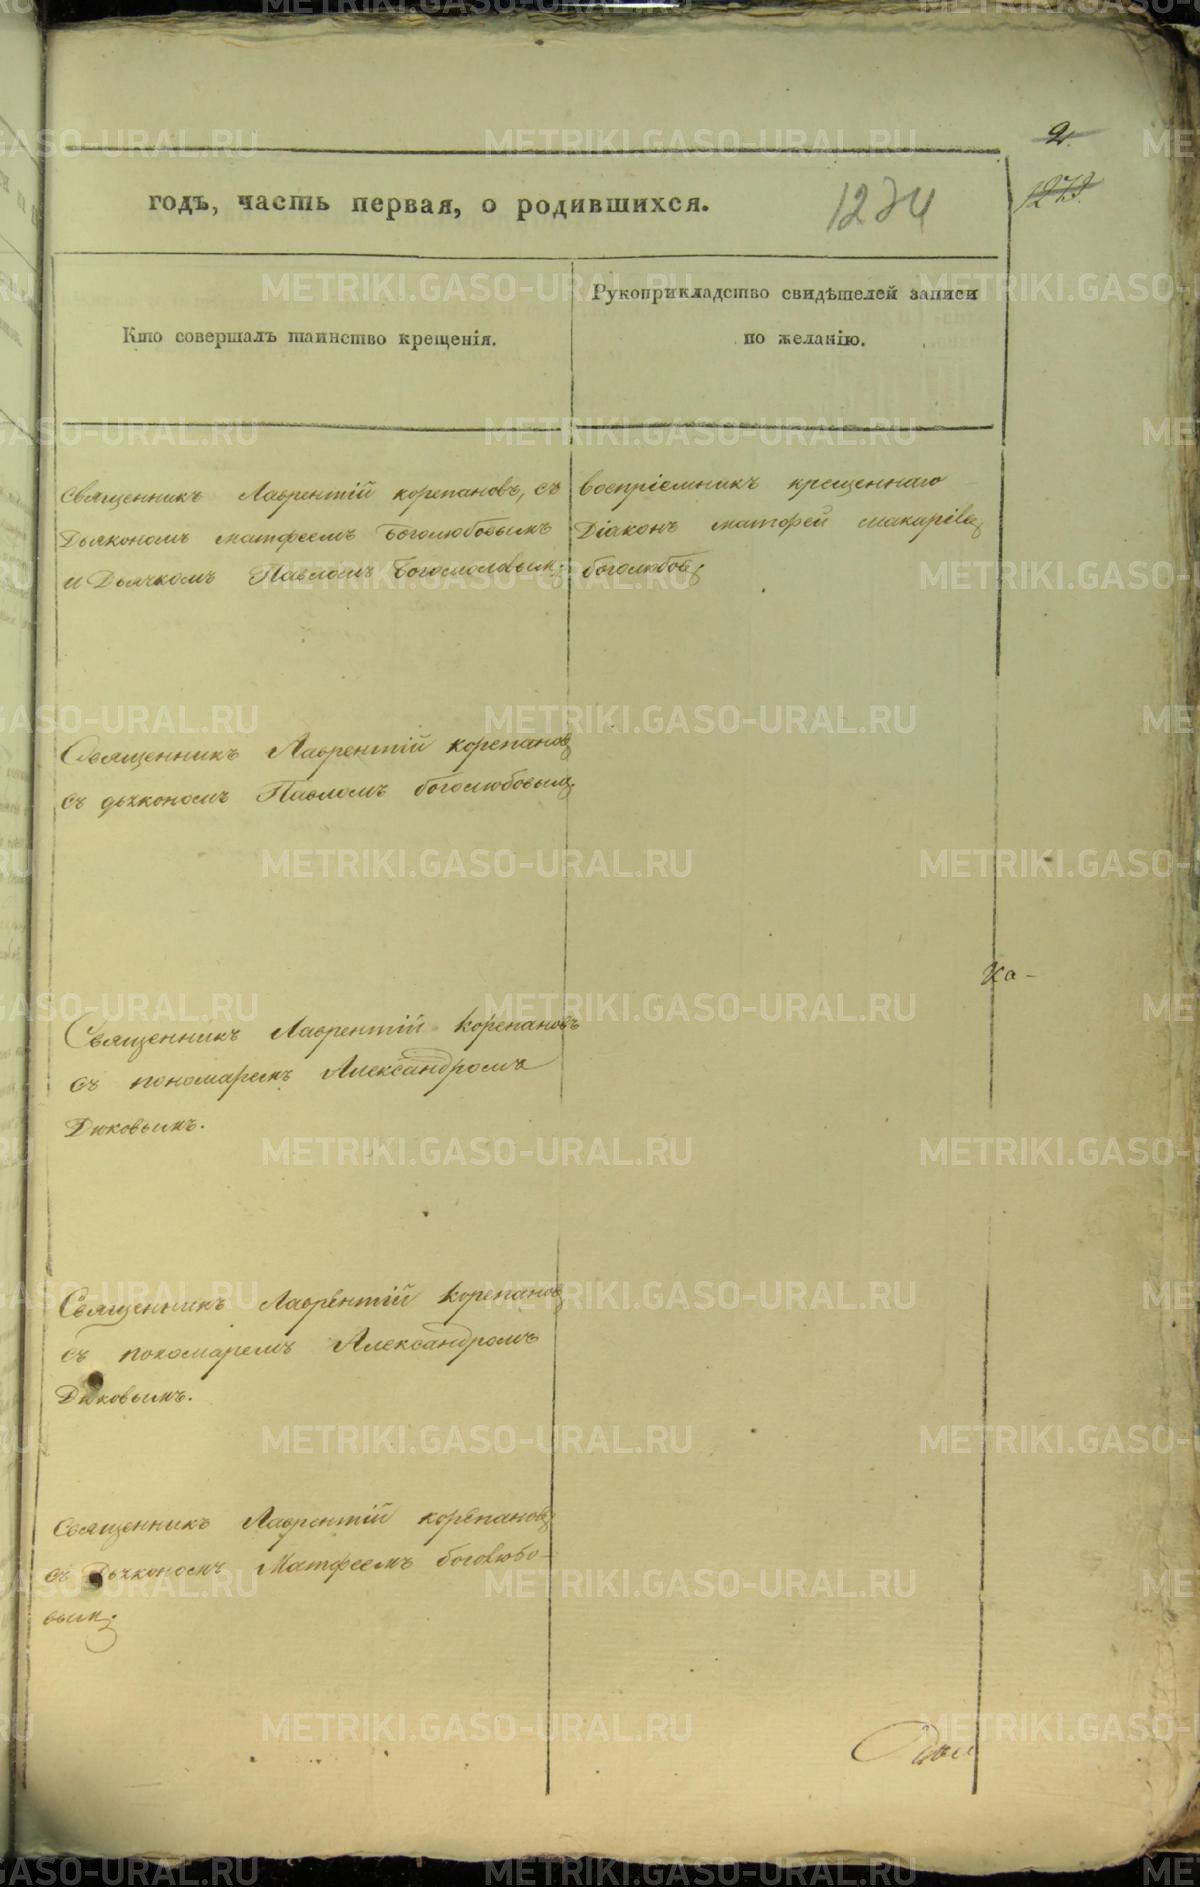 2.
1273.
годъ, часть первая, о родившихся.
1274
Кто совершалъ таинство крещенія.
Рукоприкладство свидѣтелей записи
по желанію.
Священникъ Лаврентій корепановъ, съ
Дьякономъ матфеемъ Боголюбовымъ
и Дьячкомъ Павломъ Богомоловым:
воспріемникъ крещеннаго
Діаконъ матфей макаріевъ
боголюбовъ
Священникъ Лаврентій корепановъ
съ дьякономъ Павломъ боголюбовымъ
Ка-
Священникъ Лаврентій корепановъ
съ пономаремъ Александромъ
Дюковымъ.
Священникъ Лаврентій корепановъ
съ пономаремъ Александромъ
Дюковымъ.
Священникъ Лаврентій корепановъ
съ Дьякономъ Матфеемъ боголюбо-
вым.
METRIKI.GASO-URAL.RU